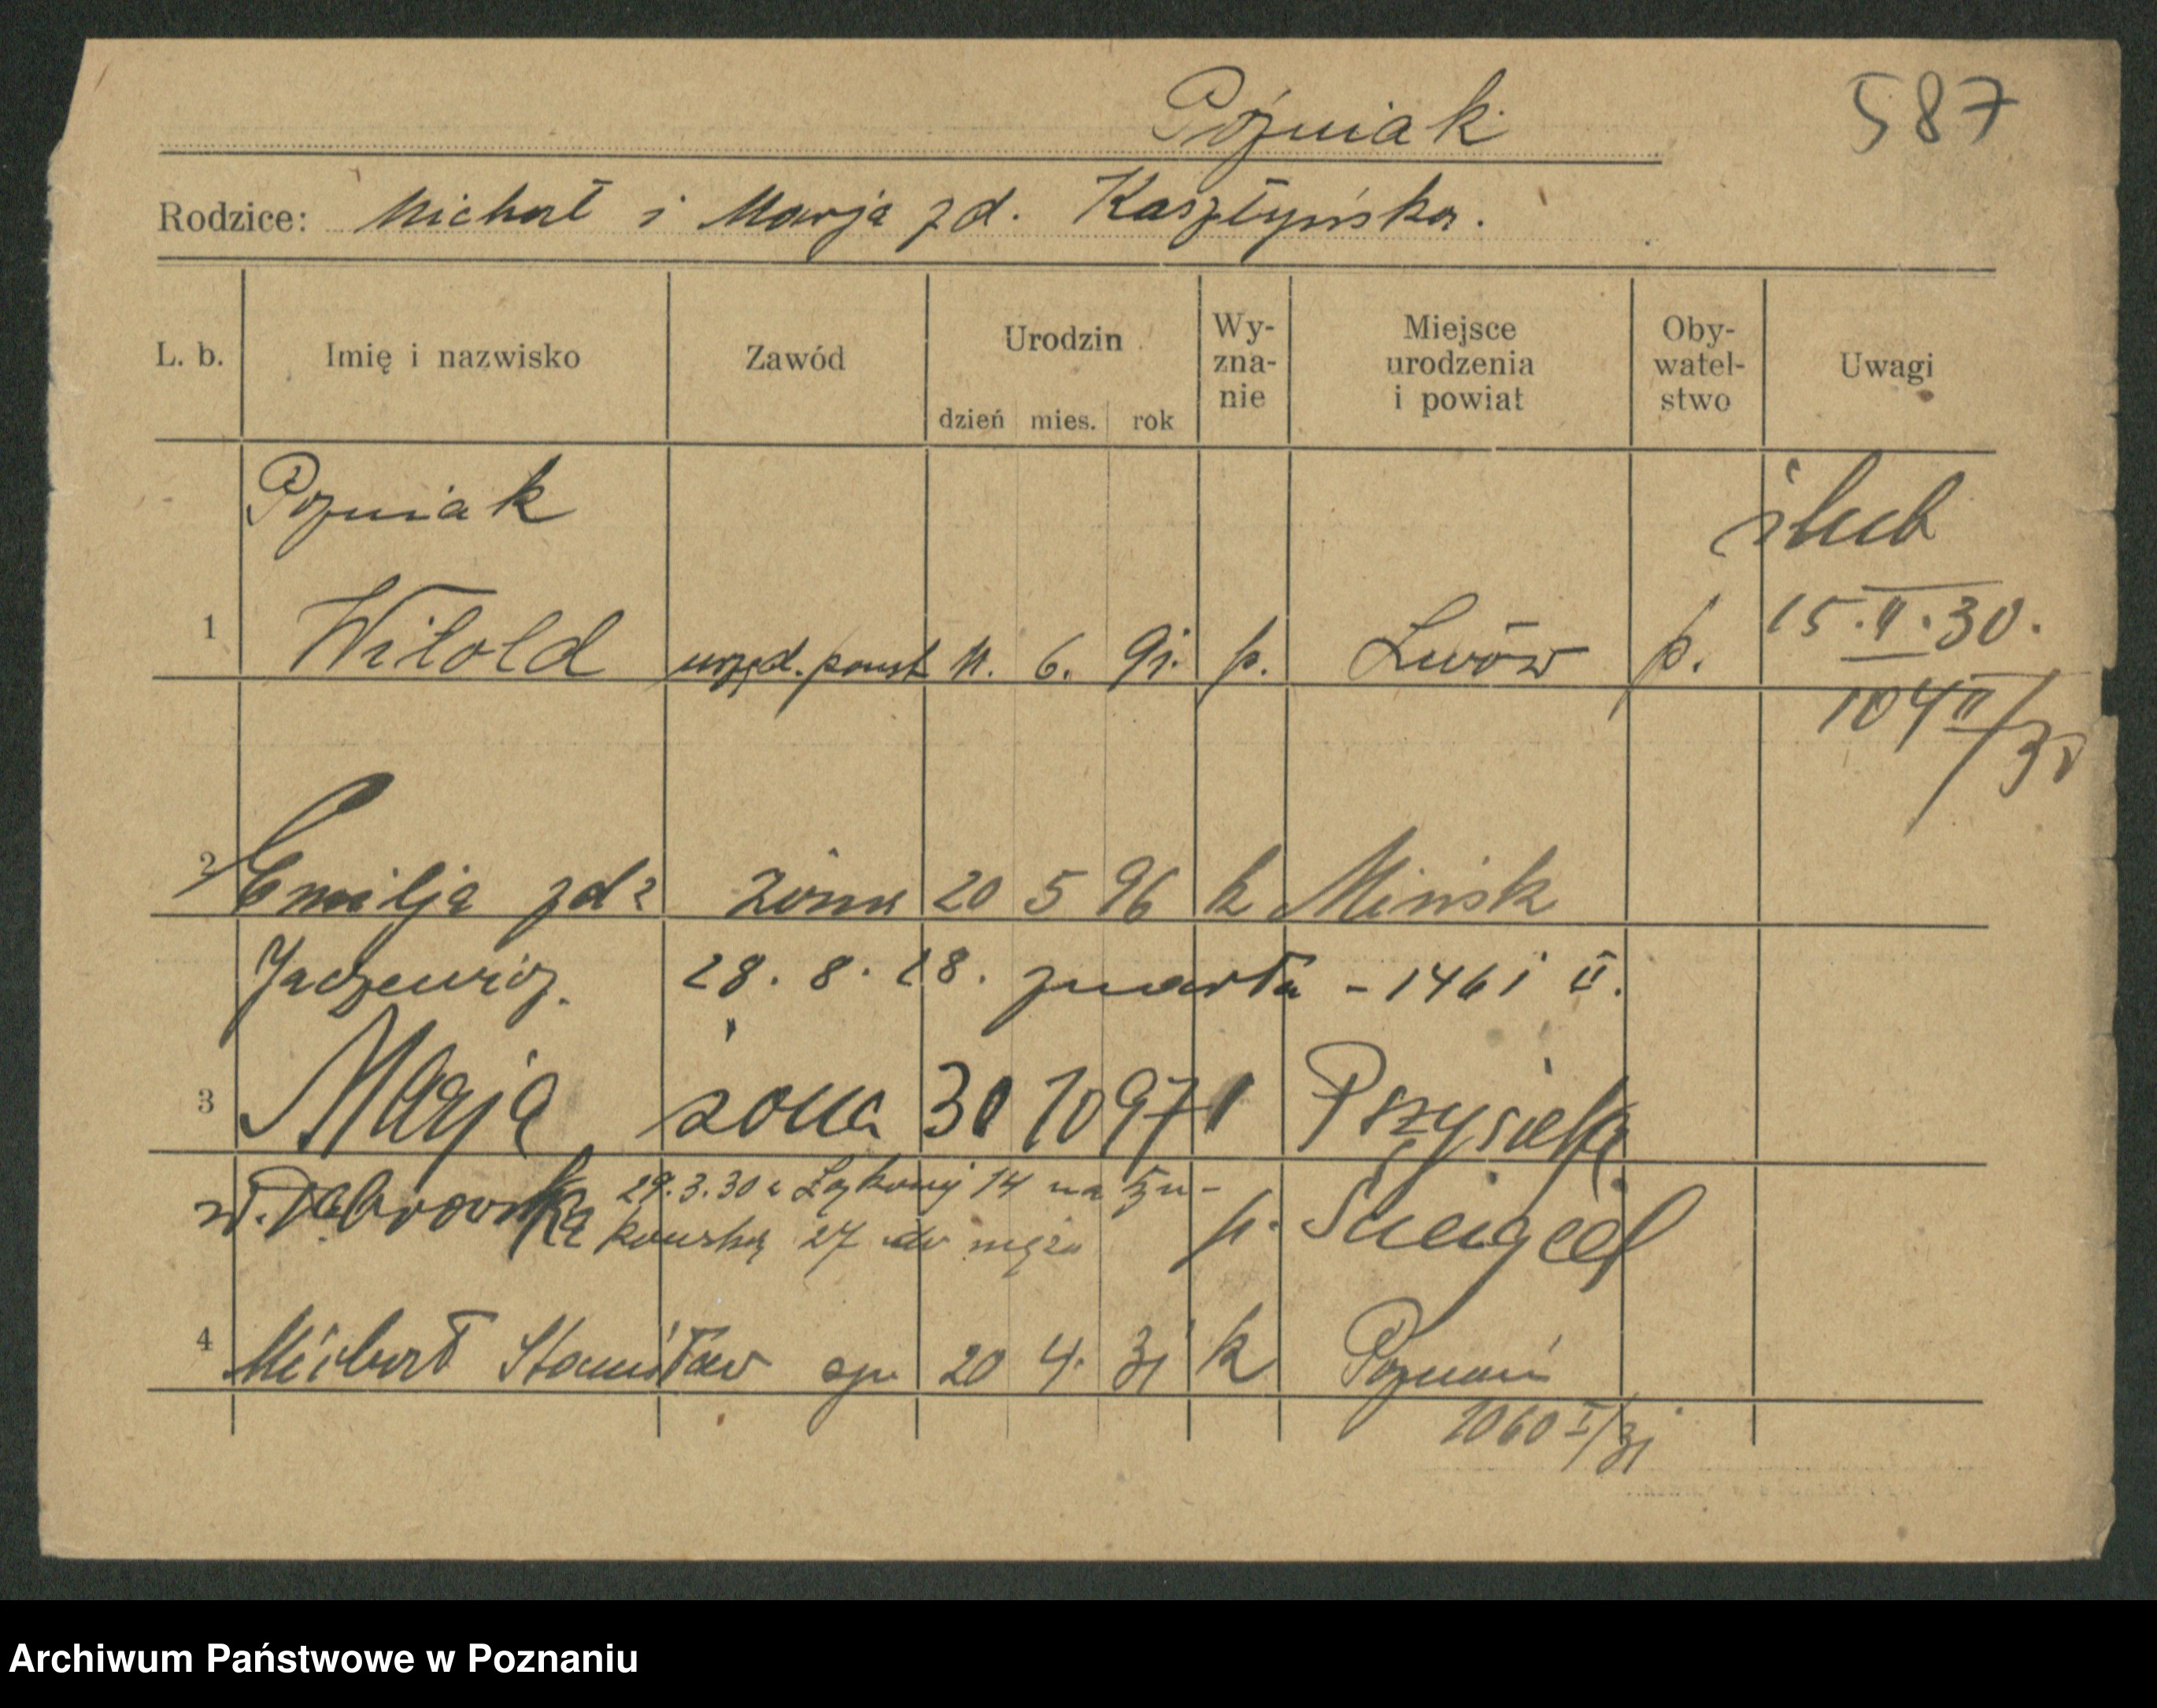 Późniak
587
Rodzice: Michał i Marja zd. Kasztyńska.
L. b. Imię i nazwisko Zawód Urodzin dzień mies. rok Wy-zna-nie Miejsce urodzenia i powiat Oby-watel-stwo Uwagi
Pozniak ślub
1 Witold urzęd. państ 11. 6. 91. p. Lwów p. 15.II.30.
104 II/30
2 Emilja zd. żona 20 5 96 k Mińsk
Jaczewicz. 28. 8. 28. zmarła - 1461 II.
3 Marja żona 30 10 97
zd. Dabrowska 29.3.30 z Łąkowej 14 na
27 do męża
4 Michał Stanisław syn 20 4. 31 k Poznań
1060 I/31
Archiwum Państwowe w Poznaniu